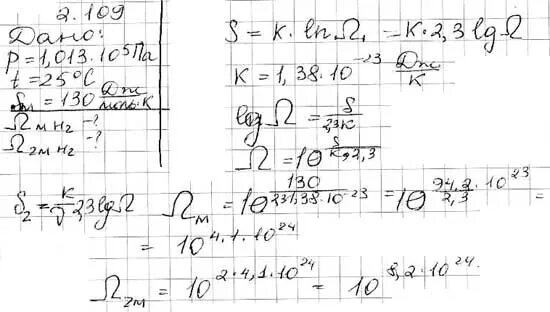 2.109
Дано:
P=1,013·10⁵Па
t=25°C
Sм=130 Дж/моль·К
Ωм н₂ -?
Ω₂м н₂ -?
S = K·ln Ω, = K·2,3 lg Ω
K = 1,38·10⁻²³ Дж/К
lg Ω = S/2,3K
Ω = 10^(S/K·2,3)
S₂ = K/ν 2,3 lg Ω Ωм = 10^(130/2,3·1,38·10⁻²³) = 10^(94,2·10²³/2,3) =
= 10^(4,1·10²⁴)
Ω₂м = 10^(2·4,1·10²⁴) = 10^(8,2·10²⁴).